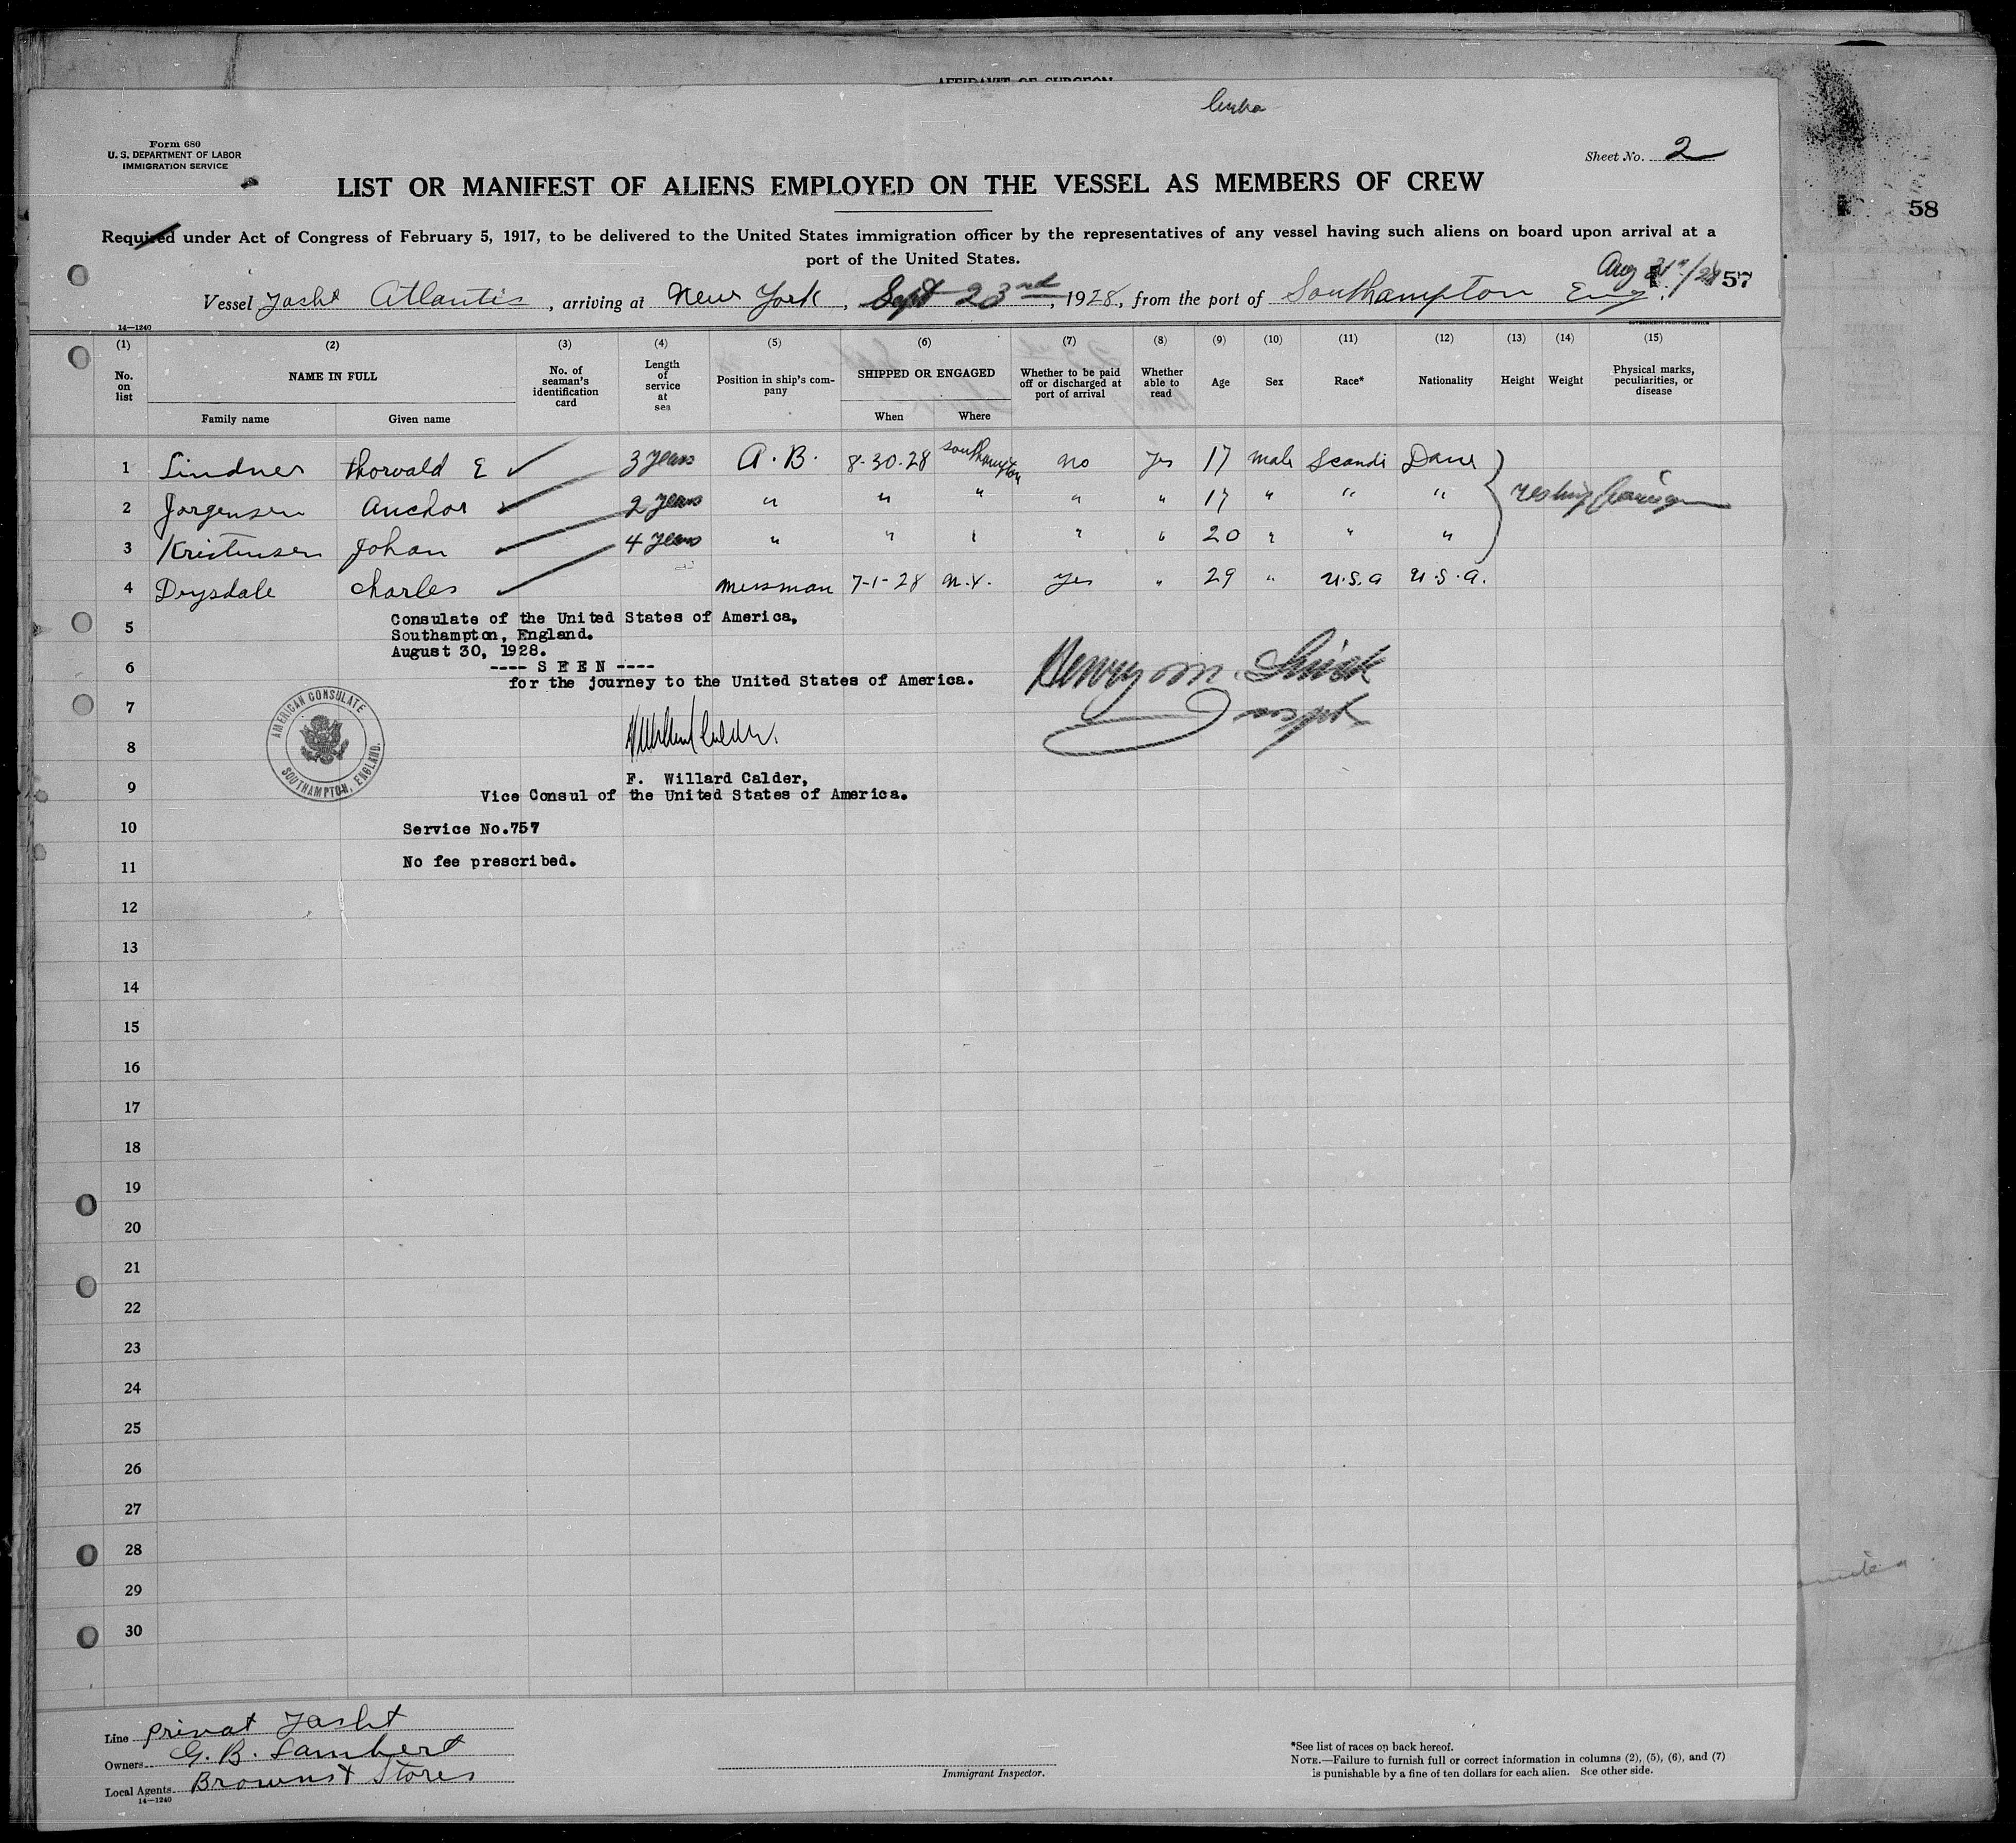 AFFIDAVIT OF SURGEON
Cuba
Form 680
U. S. DEPARTMENT OF LABOR
IMMIGRATION SERVICE
Sheet No. 2
LIST OR MANIFEST OF ALIENS EMPLOYED ON THE VESSEL AS MEMBERS OF CREW
58
Required under Act of Congress of February 5, 1917, to be delivered to the United States immigration officer by the representatives of any vessel having such aliens on board upon arrival at a
port of the United States.
Aug 31st/28 57
Vessel Yasht Atlantis, arriving at New York, Sept 23rd, 1928, from the port of Southampton Eng.
14—1240
GOVERNMENT PRINTING OFFICE
(1) (2) (3) (4) (5) (6) (7) (8) (9) (10) (11) (12) (13) (14) (15)
No. on list
NAME IN FULL
Family name
Given name
No. of seaman's identification card
Length of service at sea
Position in ship's company
SHIPPED OR ENGAGED
When
Where
Whether to be paid off or discharged at port of arrival
Whether able to read
Age
Sex
Race*
Nationality
Height
Weight
Physical marks, peculiarities, or disease
1 Lindner thorvald E 3 years A.B. 8-30-28 Southampton no yes 17 male Scandi Dane
2 Jorgensen Anchor 2 years " " " " " 17 " " "
3 Kristensen Johan 4 years " " " " " 20 " " "
4 Drysdale Charles messman 7-1-28 N.Y. yes " 29 " U.S.A U.S.A.
5
6
7
8
9
10
11
12
13
14
15
16
17
18
19
20
21
22
23
24
25
26
27
28
29
30
Consulate of the United States of America,
Southampton, England.
August 30, 1928.
---- S E E N ----
for the journey to the United States of America.
AMERICAN CONSULATE
SOUTHAMPTON, ENGLAND.
F. Willard Calder,
Vice Consul of the United States of America.
Service No.757
No fee prescribed.
Henry M.
Line privat Yasht
Owners G. B. Lambert
Local Agents Browns Stores
14—1240
Immigrant Inspector.
*See list of races on back hereof.
NOTE.—Failure to furnish full or correct information in columns (2), (5), (6), and (7)
is punishable by a fine of ten dollars for each alien. See other side.